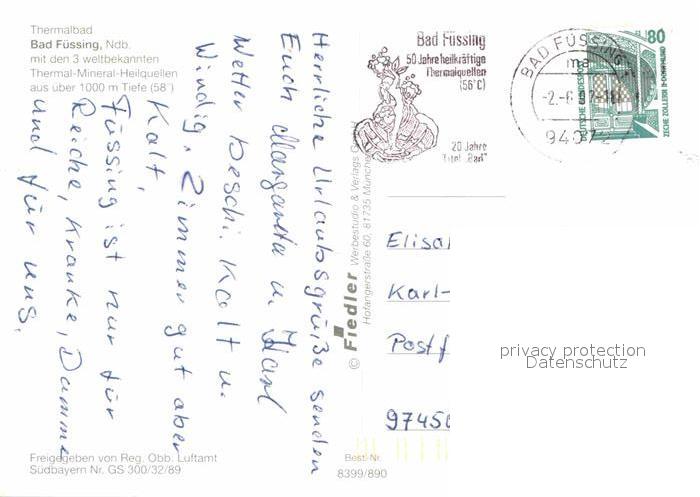 Thermalbad
Bad Füssing, Ndb.
mit den 3 weltbekannten
Thermal-Mineral-Heilquellen
aus über 1000 m Tiefe (58°)
Herrliche Urlaubsgrüße senden
Euch Margareta u. Karl
Wetter besch. Kalt u.
Windig. Zimmer gut aber
Kalt,
Füssing ist nur für
Reiche, Kranke, Dumme
und für uns.
Freigegeben von Reg. Obb. Luftamt
Südbayern Nr. GS 300/32/89
© Fiedler Werbestudio & Verlags
Hofangerstraße 60, 81735 München
Best-Nr.
8399/890
Bad Füssing
50 Jahre heilkräftige
Thermalquellen
(56°C)
20 Jahre
Titel "Bad"
BAD FÜSSING
80
DEUTSCHE BUNDESPOST
ZECHE ZOLLERN II · DORTMUND
Elisa
Karl-
Postf
97456
privacy protection
Datenschutz